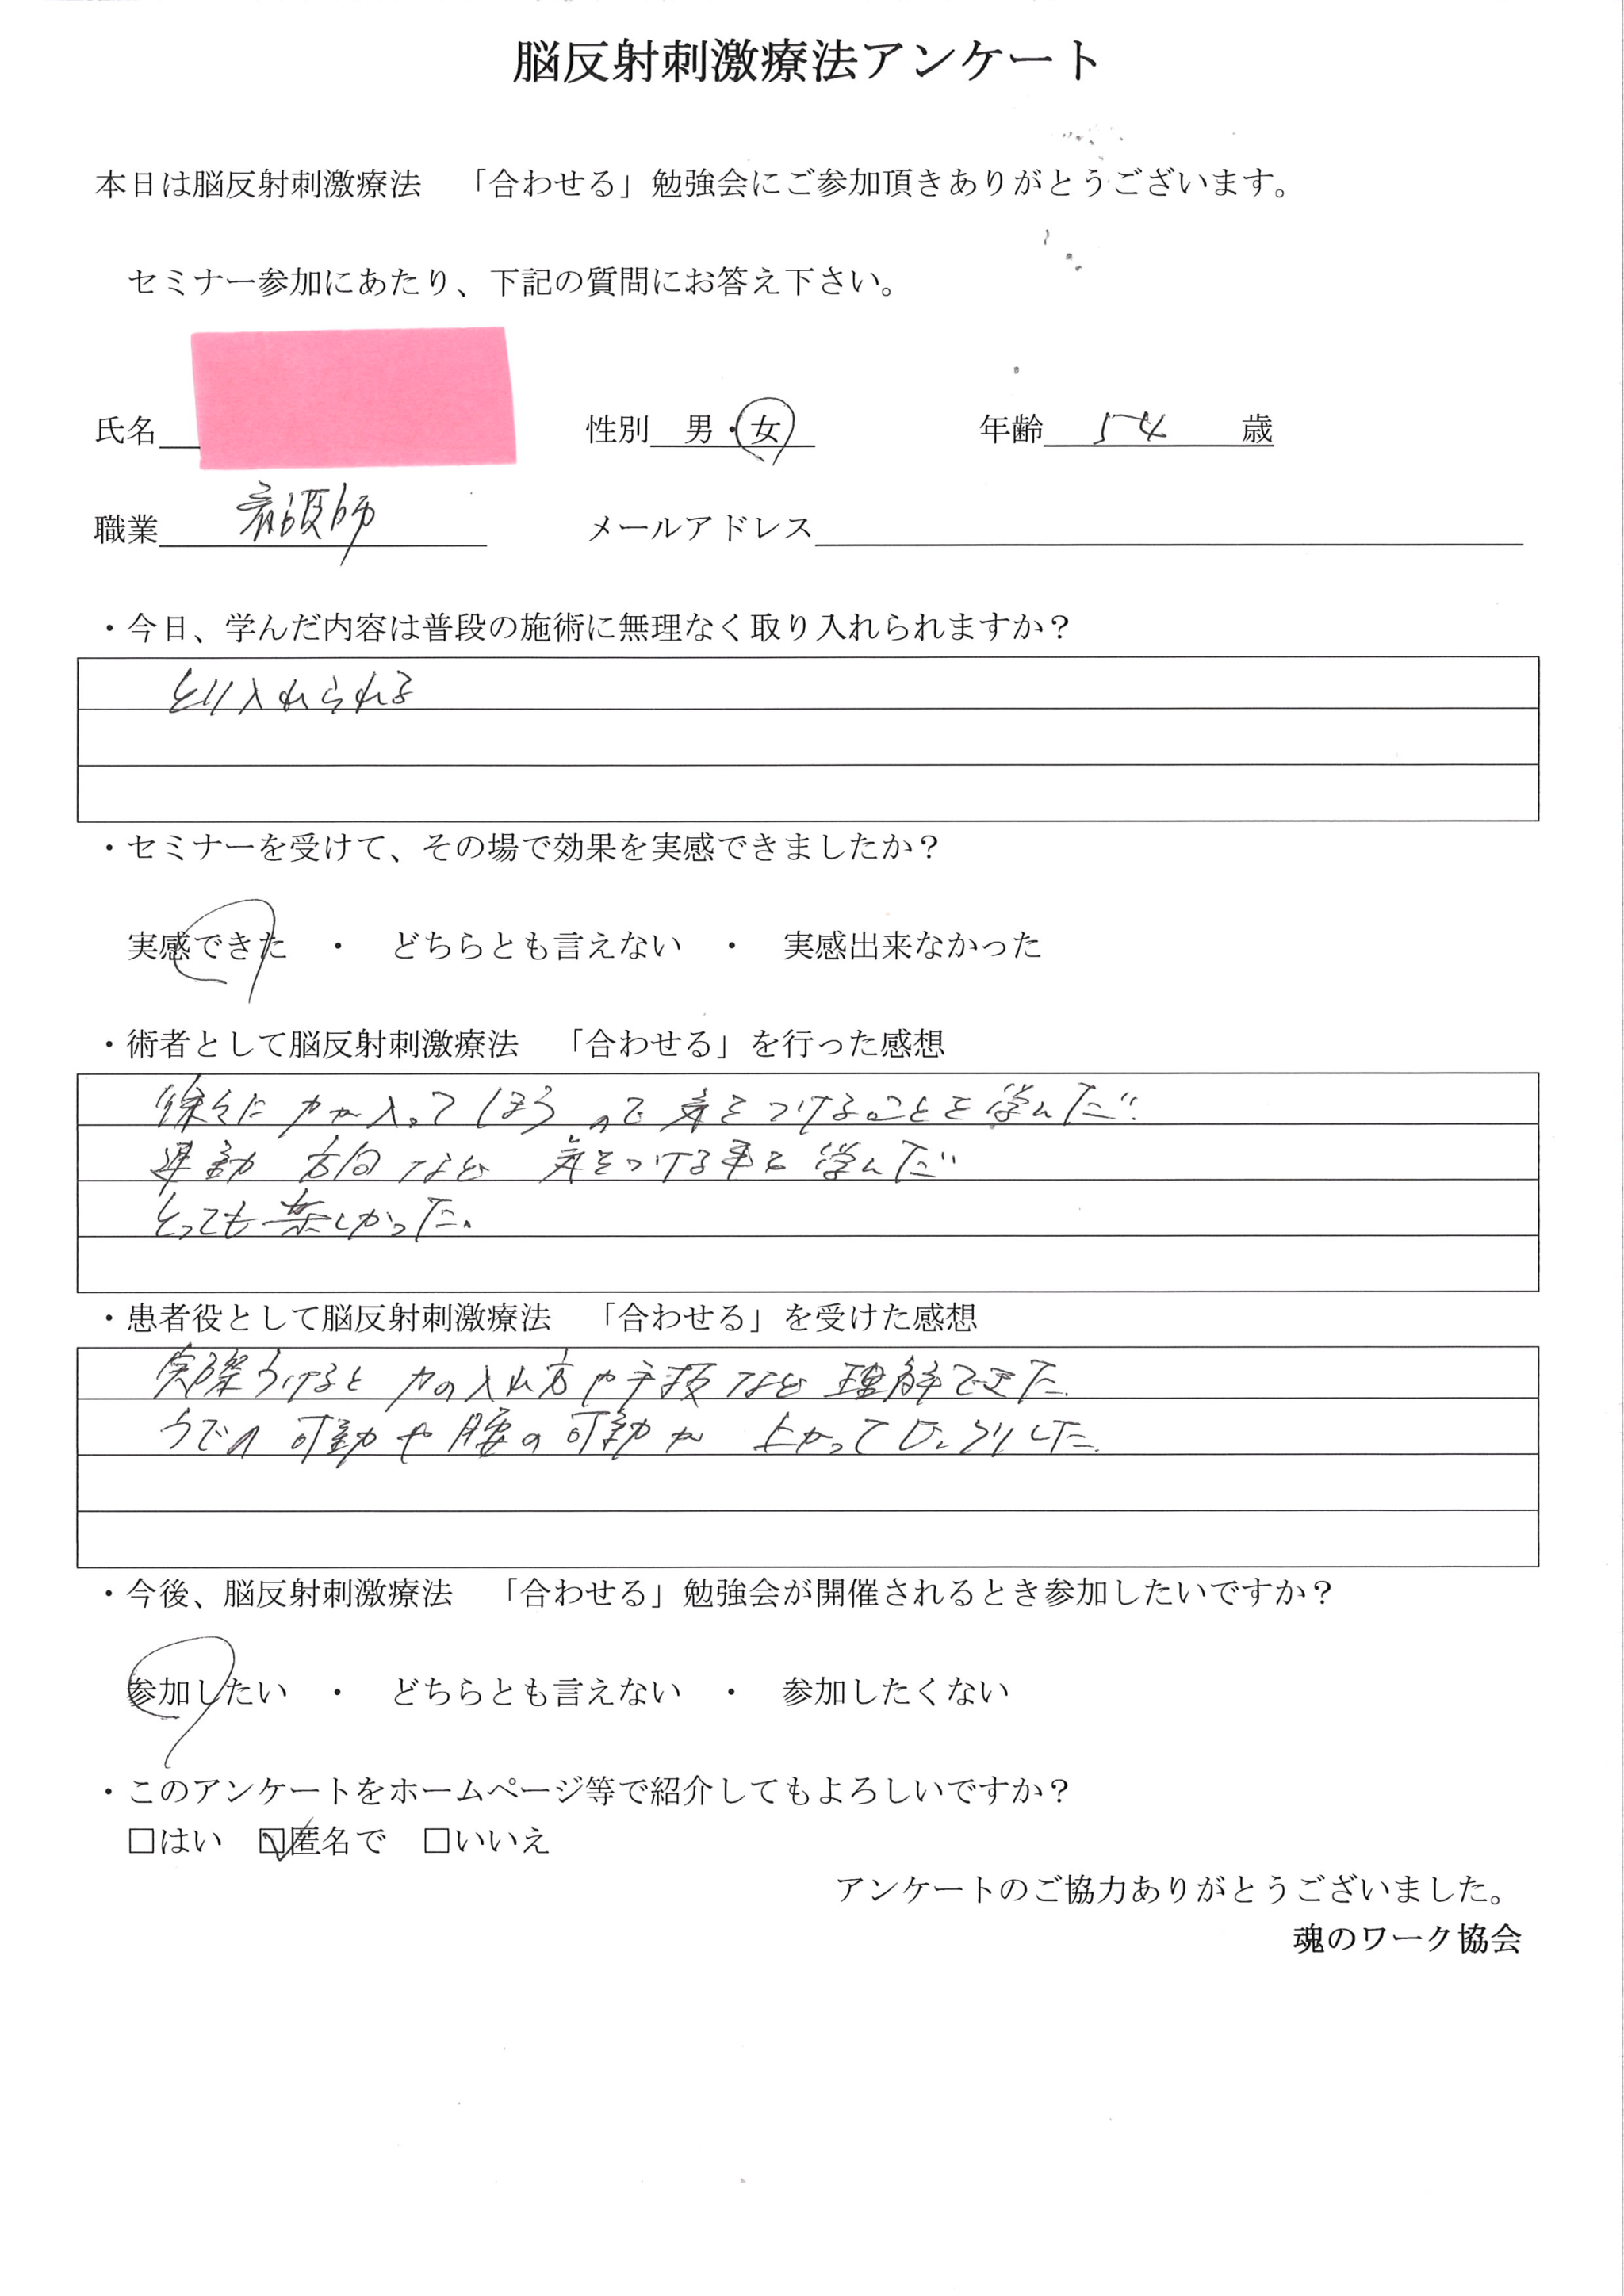 脳反射刺激療法アンケート
本日は脳反射刺激療法　「合わせる」勉強会にご参加頂きありがとうございます。
セミナー参加にあたり、下記の質問にお答え下さい。
氏名　性別　男・女　年齢　54　歳
職業　看護師　メールアドレス
・今日、学んだ内容は普段の施術に無理なく取り入れられますか？
とり入れられる
・セミナーを受けて、その場で効果を実感できましたか？
実感できた　・　どちらとも言えない　・　実感出来なかった
・術者として脳反射刺激療法　「合わせる」を行った感想
徐々に力が入ってしまうので気をつけることを学んだ
運動方向など気をつける事を学んだ
とっても楽しかった。
・患者役として脳反射刺激療法　「合わせる」を受けた感想
実際うけると力の入れ方や手技など理解できた。
うでの可動や腰の可動が上がってびっくりした。
・今後、脳反射刺激療法　「合わせる」勉強会が開催されるとき参加したいですか？
参加したい　・　どちらとも言えない　・　参加したくない
・このアンケートをホームページ等で紹介してもよろしいですか？
□はい　☑匿名で　□いいえ
アンケートのご協力ありがとうございました。
魂のワーク協会